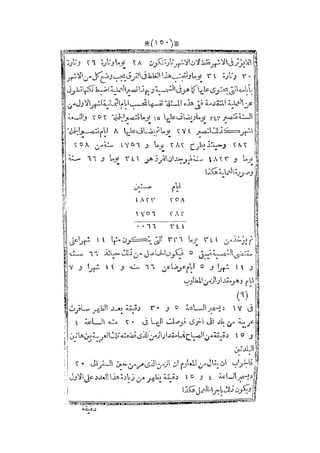 *(١٥٠)*
الفايز في الاشهر فقط لان الاشهر تارة تكون ٢٨ يوما وتارة ٢٩
وتارة ٣٠ وتارة ٣١ يوما ولتجنب هذا الغلط في الفرق يجب وضع كل من الاشهر
بايامه التي يحتوي عليها كما هو في الشمسية وبهذا تصير العملية اضبط لكنها اطول
عن العملية المتقدمة ففي هذه المسئلة نفسها تحسب ايام الثمانية اشهر الاول من
السنة فتصير ٢٤٣ يوما ويضاف عليها ١٥ يوما فتصير الجملة ٢٥٨ والتسعة
اشهر كذلك تصير ٢٧٤ يوما يضاف عليها ٨ ايام فتصير الجملة
٢٨٢ وحينئذ يطرح ٢٨٢ يوما و ١٧٥٦ سنة من ٢٥٨
يوما و ١٨٢٣ سنة فيوجد ان الفرق هو ٣٤١ يوما و ٦٦ سنة
وصورة العملية هكذا
ايام سنين
٢٥٨ ١٨٢٣
٢٨٢ ١٧٥٦
٣٤١ ٠٠٦٦
ثم يؤخذ من ٣٤١ يوما ٣٣٦ التي يتكون منها ١١ شهرا على
مقتضى الشمسية فيبقى ٥ فيكون الحاصل من ذلك حينئذ ٦٦ سنه
و ١١ شهرا و ٥ ايام عوضا عن ٦٦ سنه و ١١ شهرا و ٧
ايام وهو مقدار الزمن المطلوب
(٦)
في ١٧ ديسمبر الساعة ٥ و ٣٠ دقيقة بعد الظهر سافرت
عربية من بلد الى اخرى فوصلت اليها في ٢٠ منه الساعة ٤
و ١٥ دقيقة من الصباح فما مقدار الزمن الذي قطعته تلك العربية بين هاتين
البلدتين
فالجواب ان يقال من المعلوم ان الزمن الذي مر من حين السفر الى ٢٠
ديسمبر الساعة ٤ و ١٥ دقيقة يظهر من زيادة هذا العدد على الاول
ويكون ذلك باجراء العمل هكذا
دقيقه